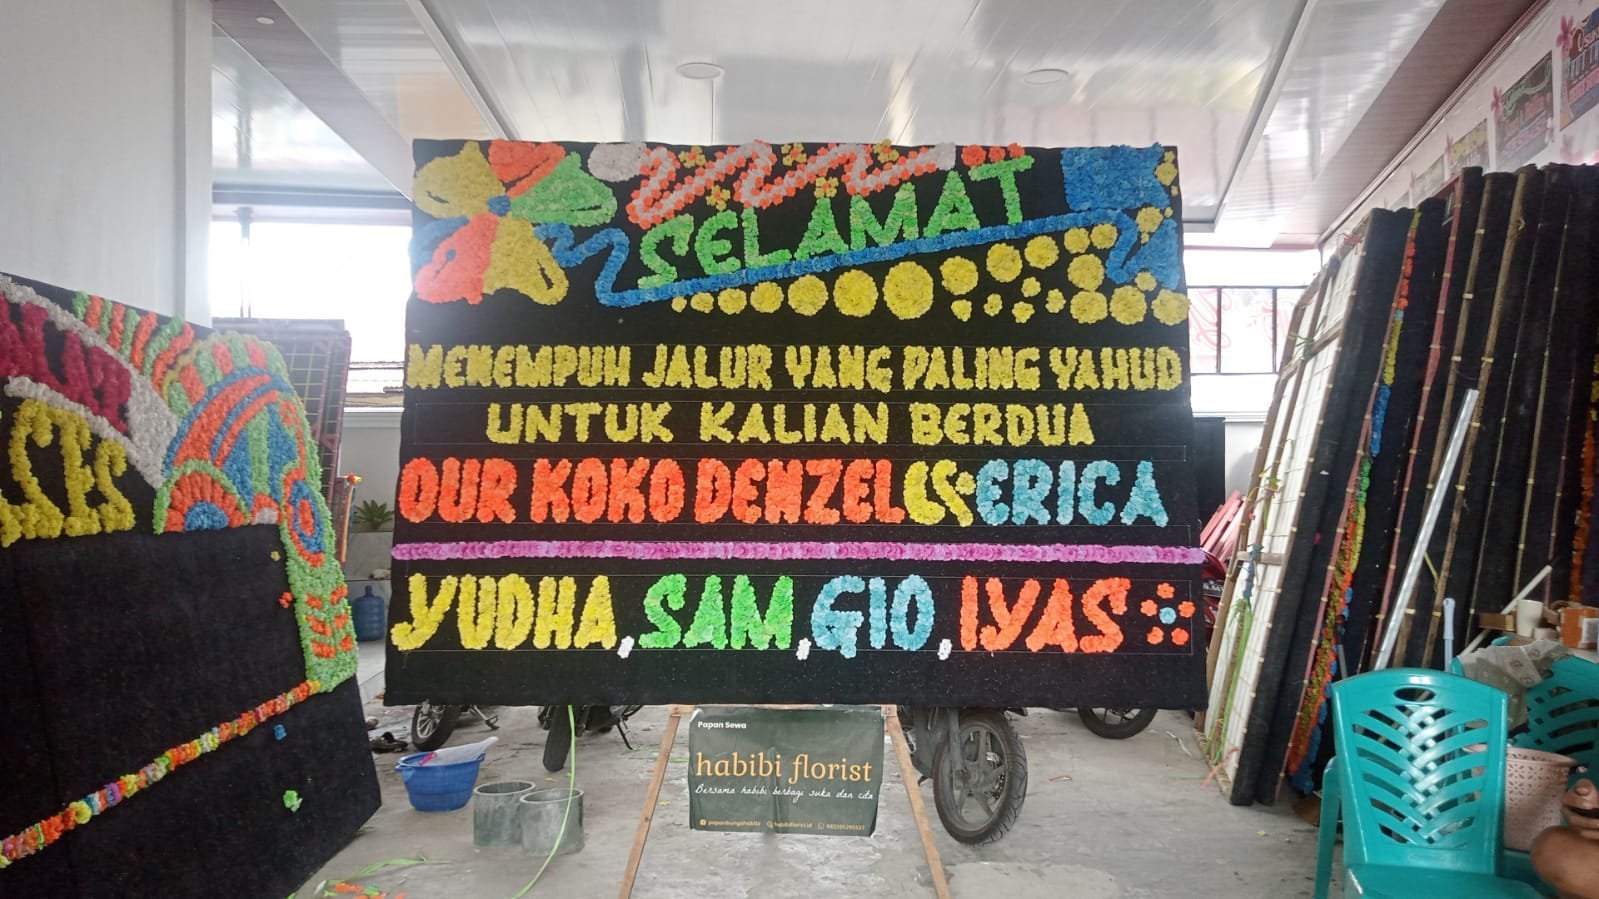 SELAMAT
MENEMPUH JALUR YANG PALING YAHUD
UNTUK KALIAN BERDUA
OUR KOKO DENZEL & ERICA
YUDHA, SAM, GIO, IYAS
Papan Sewa
habibi florist
Bersama habibi berbagi suka dan cita
papanbungahabibi habibiflorist.id